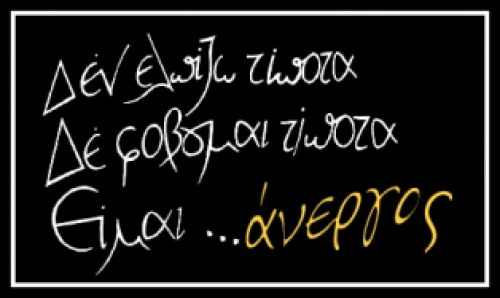 Δέν ελπίζω τίποτα
Δέ φοβȣμαι τίποτα
Είμαι ...άνεργος